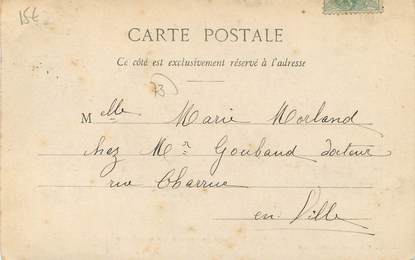 15€
CARTE POSTALE
Ce côté est exclusivement réservé à l'adresse
73
Melle Marie Morland
chez Mr Goubaud docteur
rue Charrue
en Ville